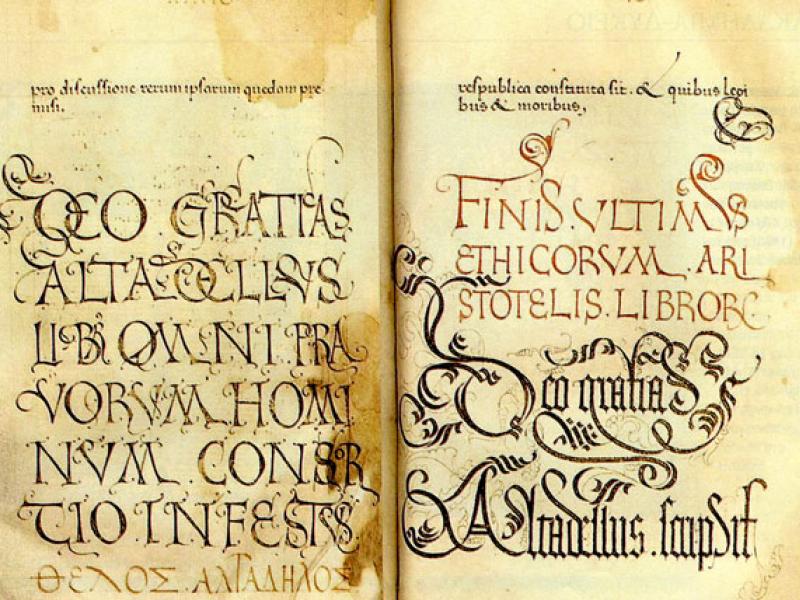 pro discussione rerum ipsarum quedam pre-
misi.
DEO GRATIAS
ALTADELLVS
LIBR OMNI PRA
VORVM HOMI
NVM CONSR
TIO INFESTVS
ΘΕΛΟΣ. ΑΛΤΑΔΗΛΟΣ
respublica constituta sit. & quibus legi
bus & moribus,
FINIS. VLTIMVS
ETHICORVM. ARI
STOTELIS. LIBRORC
Deo gratias
Altadellus. scripsit